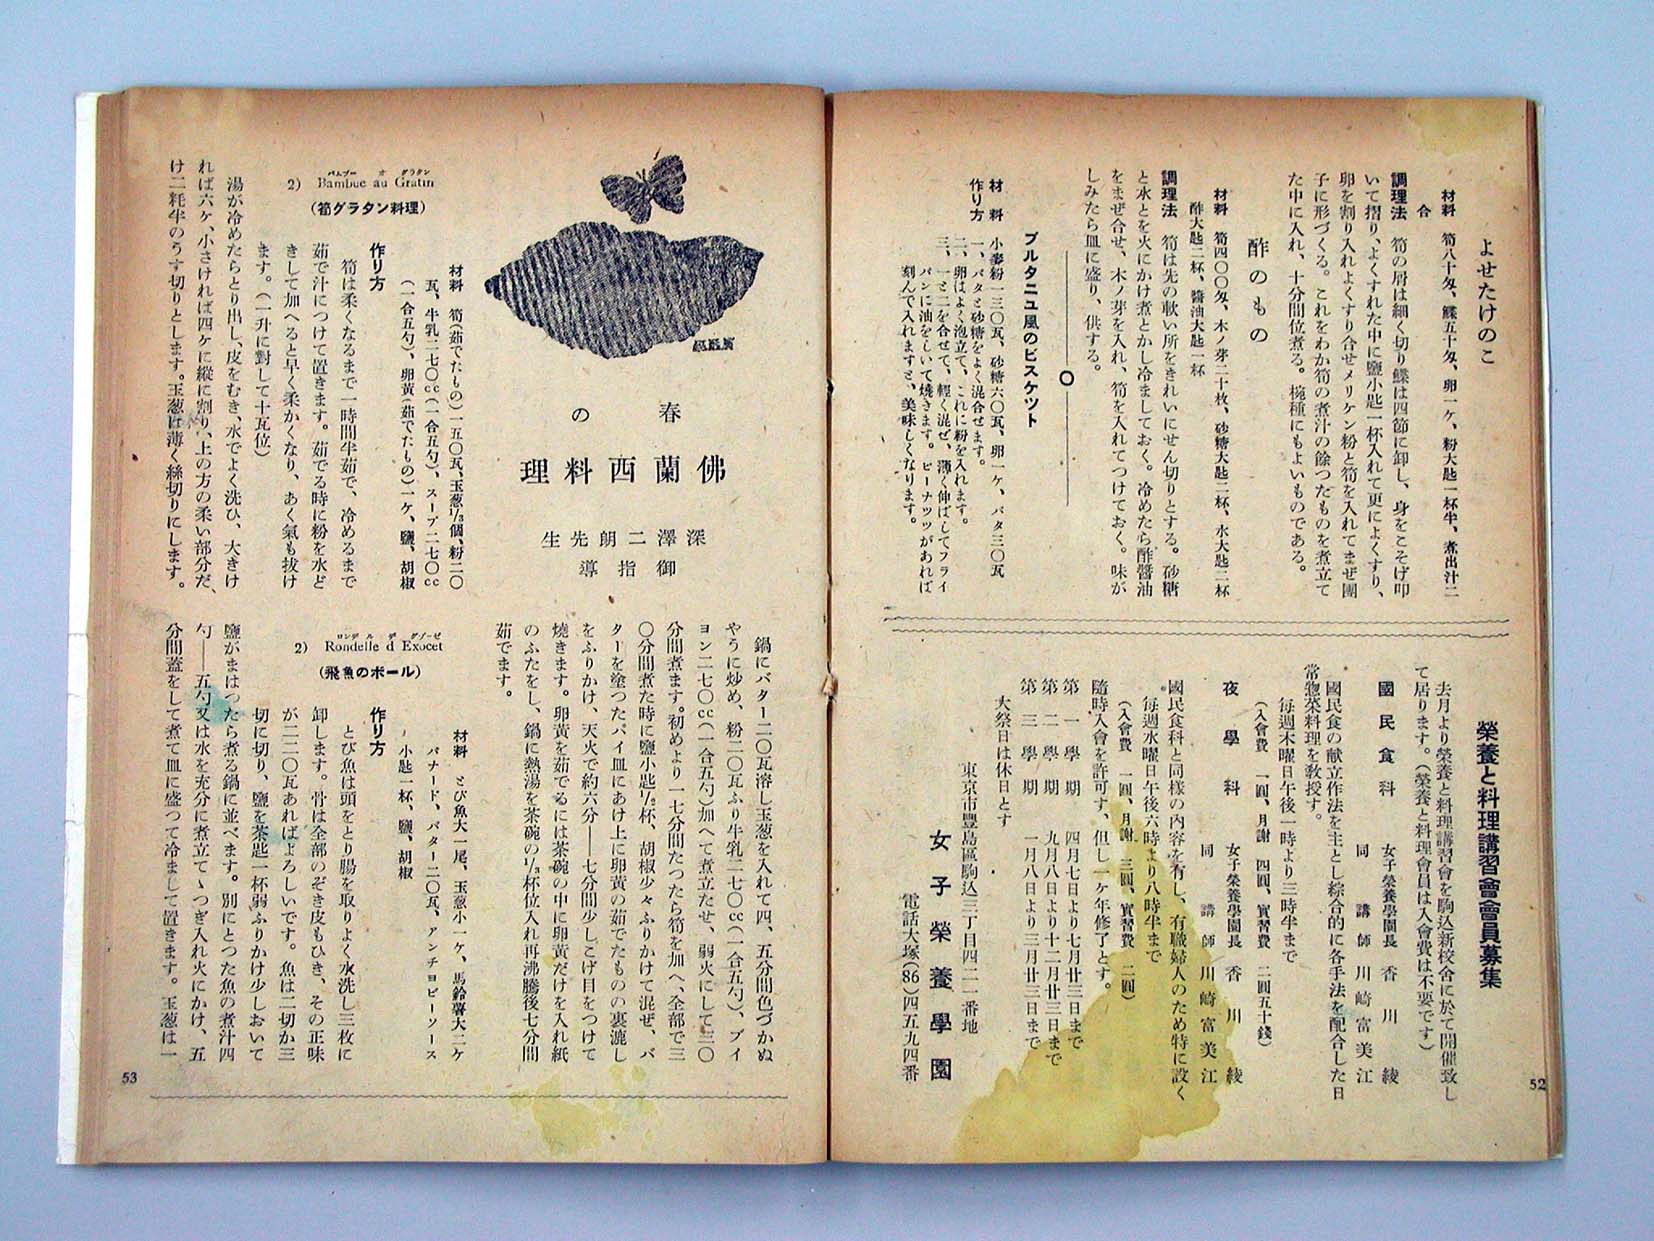 よせたけのこ
材料 筍八十匁、鰈五十匁、卵一ケ、粉大匙一杯半、煮出汁二
合
調理法 筍の屑は細く切り鰈は四節に卸し、身をこそげ叩
いて摺り、よくすれた中に鹽小匙一杯入れて更によくすり、
卵を割り入れよくすり合せメリケン粉と筍を入れてまぜ團
子に形づくる。これをわか筍の煮汁の餘つたものを煮立て
た中に入れ、十分間位煮る。椀種にもよいものである。
酢のもの
材料 筍四〇〇匁、木ノ芽二十枚、砂糖大匙二杯、水大匙二杯
酢大匙二杯、醬油大匙一杯
調理法 筍は先の軟い所をきれいにせん切りとする。砂糖
と水とを火にかけ煮とかし冷ましておく。冷めたら酢醬油
をまぜ合せ、木ノ芽を入れ、筍を入れてつけておく。味が
しみたら皿に盛り、供する。
ブルタニユ風のビスケツト
材料 小麥粉一三〇瓦、砂糖六〇瓦、卵一ケ、バタ三〇瓦
作り方 一、バタと砂糖をよく混合せます。
二、卵はよく泡立て、これに粉を入れます。
三、一と二を合せて、輕く混ぜ、薄く伸ばしてフライ
パンに油をしいて燒きます。ピーナツツがあれば
刻んで入れますと、美味しくなります。
榮養と料理講習會會員募集
去月より榮養と料理講習會を駒込新校舍に於て開催致し
て居ります。(榮養と料理會員は入會費は不要です)
國民食科 女子榮養學園長 香川綾
同 講師 川崎富美江
國民食の献立作法を主とし綜合的に各手法を配合した日
常惣菜料理を敎授す。
每週木曜日午後一時より三時半まで
(入會費 一圓、月謝 四圓、實習費 二圓五十錢)
夜學科 女子榮養學園長 香川綾
同 講師 川崎富美江
國民食科と同樣の內容を有し、有職婦人のため特に設く
每週水曜日午後六時より八時半まで
(入會費 一圓、月謝 三圓、實習費 二圓)
隨時入會を許可す、但し一ケ年修了とす。
第一學期 四月七日より七月廿三日まで
第二學期 九月八日より十二月廿三日まで
第三學期 一月八日より三月廿三日まで
大祭日は休日とす
東京市豐島區駒込三丁目四二一番地
女子榮養學園
電話大塚(86)四五九四番
52
春の
佛蘭西料理
深澤二朗先生
御指導
2) Bambue au Gratin
バムブー オ グラタン
(筍グラタン料理)
材料 筍(茹でたもの)一五〇瓦、玉葱1/3個、粉二〇
瓦、牛乳二七〇cc(一合五勺)、スープ二七〇cc
(一合五勺)、卵黃(茹でたもの)一ケ、鹽、胡椒
作り方
筍は柔くなるまで一時間半茹で、冷めるまで
茹で汁につけて置きます。茹でる時に粉を水と
きして加へると早く柔かくなり、あく氣も拔け
ます。(一升に對して十瓦位)
湯が冷めたらとり出し、皮をむき、水でよく洗ひ、大きけ
れば六ケ、小さければ四ケに縱に割り、上の方の柔い部分だ
け二粍半のうす切りとします。玉葱は薄く絲切りにします。
鍋にバター二〇瓦溶し玉葱を入れて四、五分間色づかぬ
やうに炒め、粉二〇瓦ふり牛乳二七〇cc(一合五勺)、ブイ
ヨン二七〇cc(一合五勺)加へて煮立たせ、弱火にして二〇
分間煮ます。初めより一七分間たつたら筍を加へ、全部で三
〇分間煮た時に鹽小匙1/2杯、胡椒少々ふりかけて混ぜ、バ
ターを塗つたパイ皿にあけ上に卵黃の茹でたものの裏漉し
をふりかけ、天火で約六分——七分間少しこげ目をつけて
燒きます。卵黃を茹でるには茶碗の中に卵黃だけを入れ紙
のふたをし、鍋に熱湯を茶碗の1/3杯位入れ再沸騰後七分間
茹でます。
2) Rondelle d Exocet
ロンデル デ グゾーゼ
(飛魚のボール)
材料 とび魚大一尾、玉葱小一ケ、馬鈴薯大二ケ
バナード、バター二〇瓦、アンチヨビーソース
小匙一杯、鹽、胡椒
作り方
とび魚は頭をとり膓を取りよく水洗し三枚に
卸します。骨は全部のぞき皮もひき、その正味
が二二〇瓦あればよろしいです。魚は二切か三
切に切り、鹽を茶匙一杯弱ふりかけ少しおいて
鹽がまはつたら煮る鍋に並べます。別にとつた魚の煮汁四
勺——五勺又は水を充分に煮立てゝつぎ入れ火にかけ、五
分間蓋をして煮て皿に盛つて冷まして置きます。玉葱は一
53